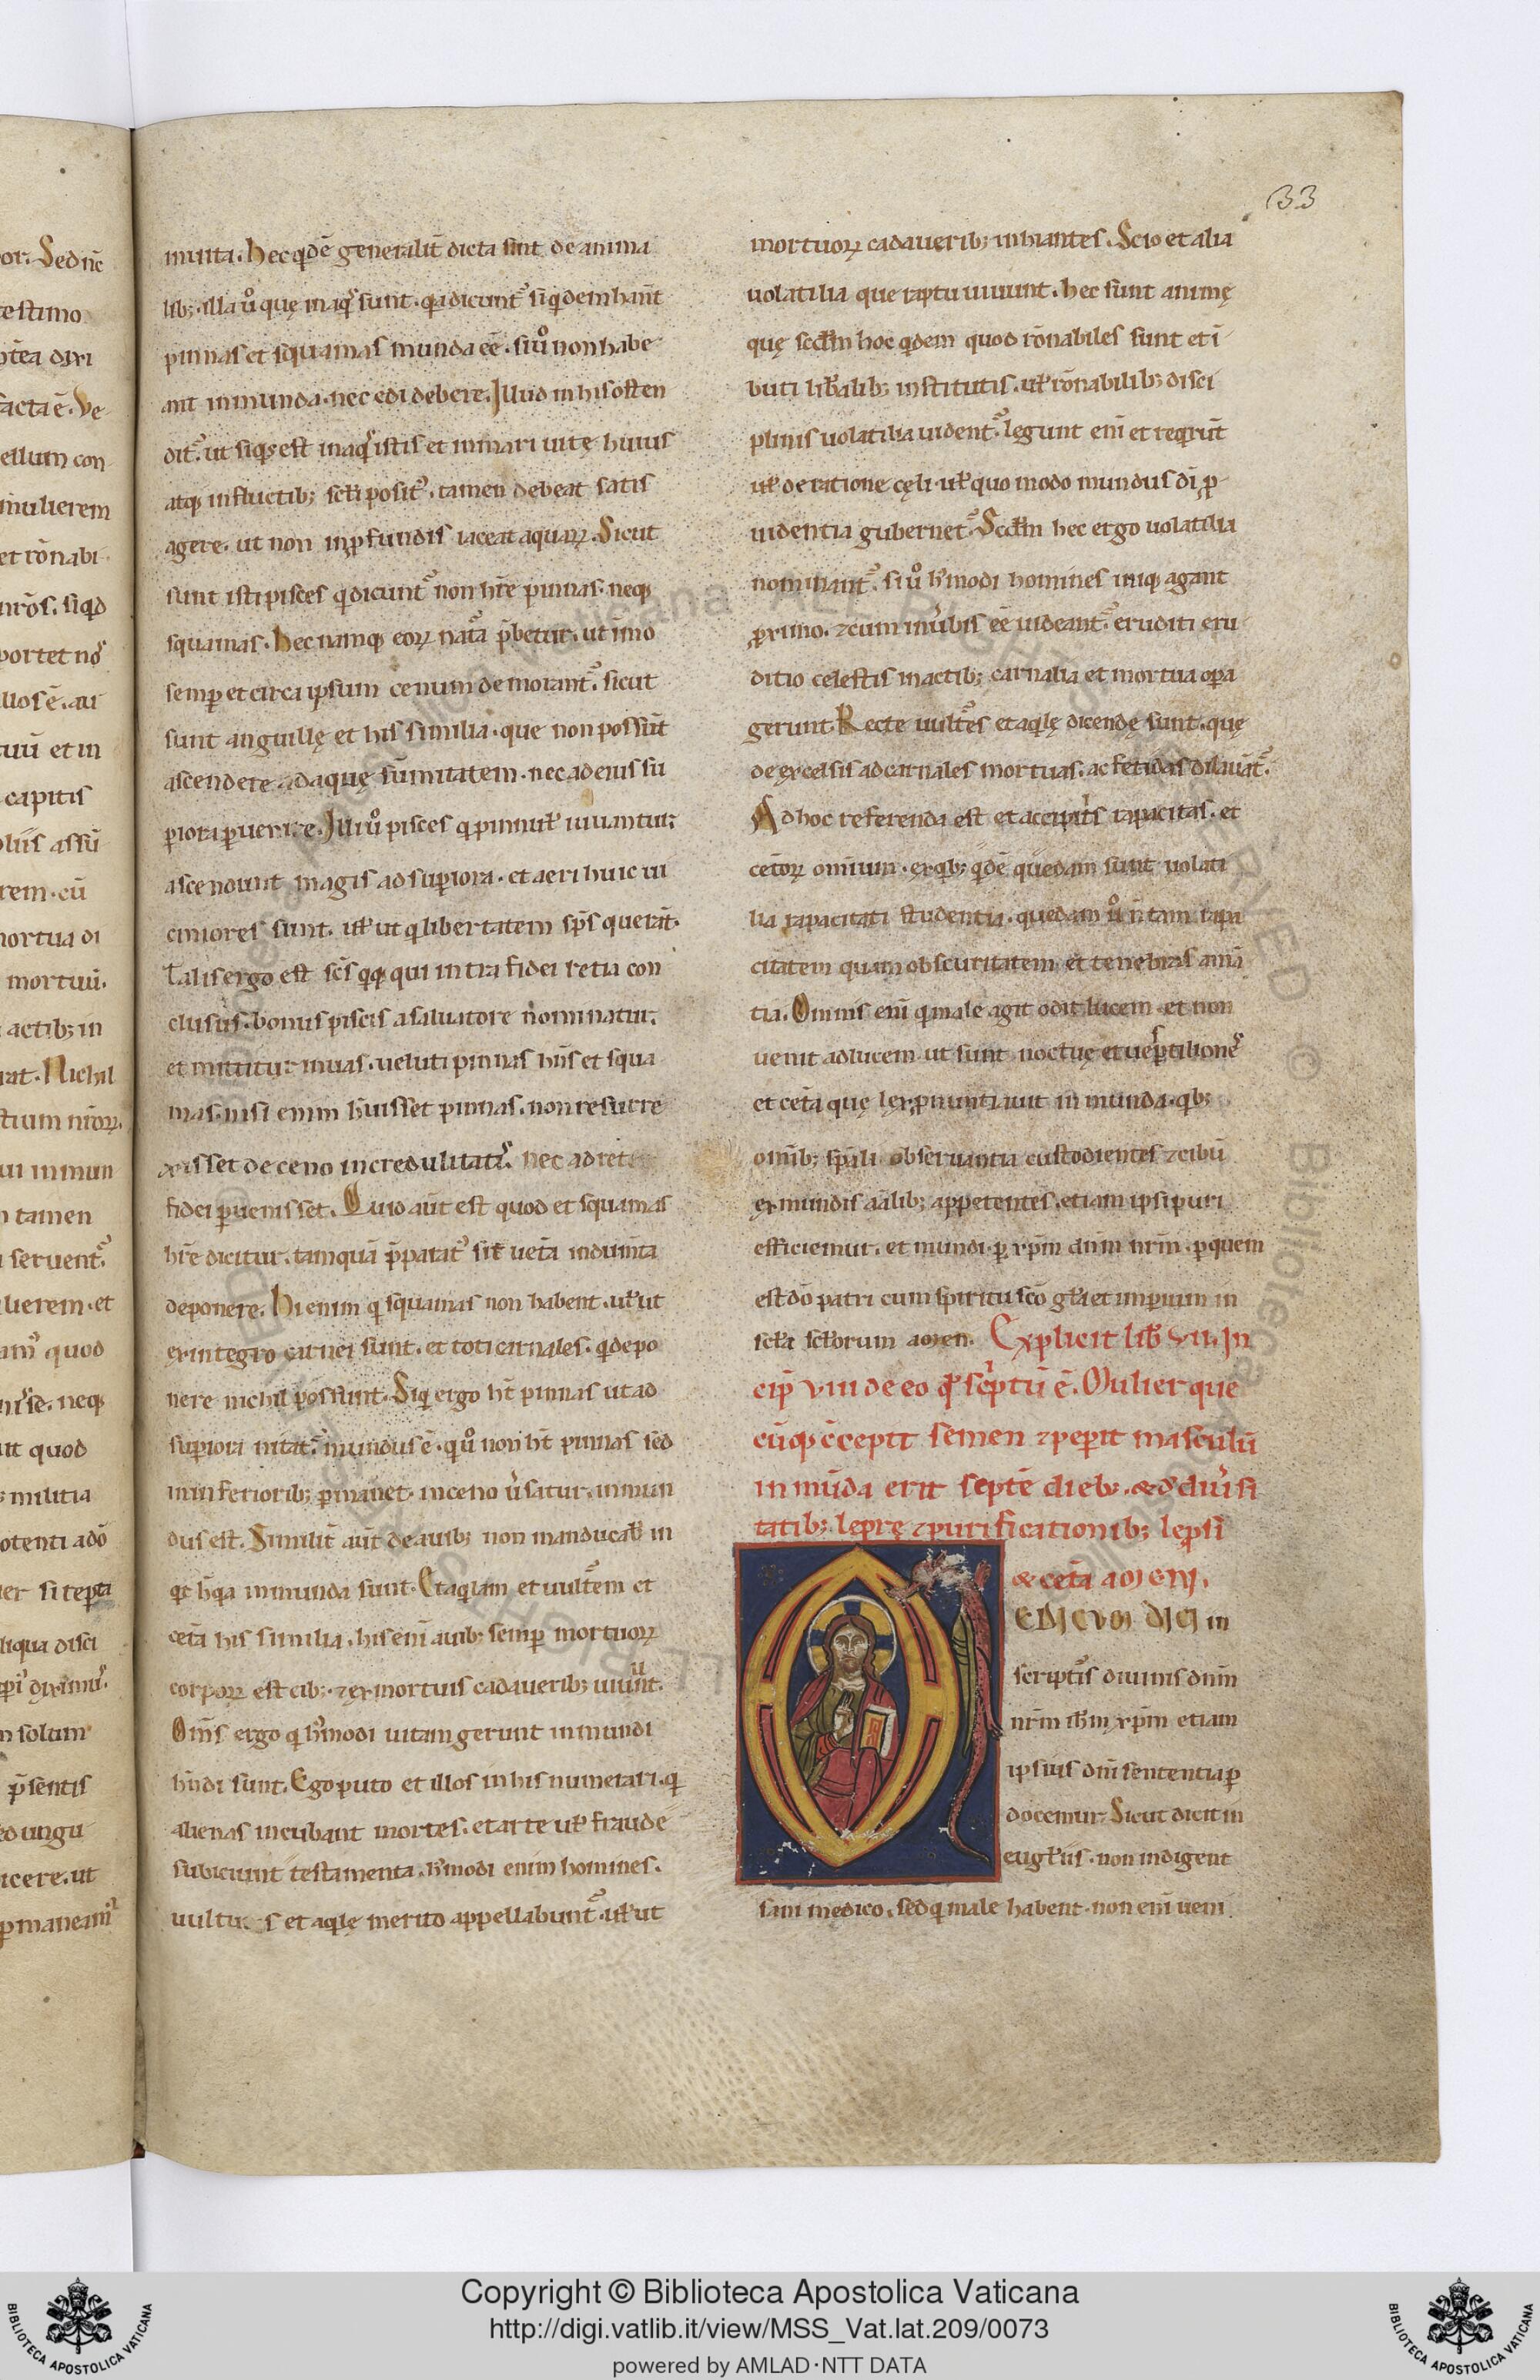 or. Sed nc̄
testimo
ptea dixi
facta ē. Ve
ellum con
mulierem
et rōnabi
uros. siqd
portet nō
llos ē. au
tuū et in
capitis
liis assū
rem. cū
mortua di
mortuū.
actib; in
rat. Nichil
stium nr̄oꝝ.
ui inmun
n tamen
seruent᷒
lierem. et
am᷒ quod
neq;
it quod
militia
otenti adō
er si repta
liqua disci
n solum
p̄sentis
ed ungu
icere. ut
ꝑmaneam᷒
133
munta. Hec qdē generalit̄ dicta sunt de anima
lib;. illa ů quę in aqs sunt. qa dicunt᷒ siqdem hant̄
pinnas et squamas munda eē. siů non habe
ant inmunda. nec edi debere. Illud in his osten
dit᷒. ut siqs est in aqs istis et in mari uitę huius
atq; in fluctib; scl̄i posit᷒. tamen debeat satis
agere. ut non in ꝓfundis iaceat aquaꝝ. Sicut
sunt isti pisces q dicunt᷒ non hr̄e pinnas. neq;
squamas. Hec namq; eoꝝ nat᷒a ꝓbetur. ut imo
semꝑ et circa ipsum cenum demorant᷒. sicut
sunt anguillę et his similia. que non possūt
ascendere ad aquę sūmitatem. nec ad eius su
piora ꝑuenire. Illi ů pisces q pinnul̄ iuuantur;
ascendunt magis ad supiora. et aeri huic ui
ciniores sunt. ul̄ ut q libertatem sp̄s querāt.
Talis ergo est scs̄ qsq; qui intra fidei retia con
clusus. bonus piscis a saluatore nominatur.
et mittitur in uas. ueluti pinnas hn̄s et squa
mas. nisi enim huisset pinnas. non resurre
xisset de ceno incredulitatis. nec ad rete
fidei ꝑuenisset. Quid aut̄ est quod et squamas
hr̄e dicitur. tamquā p̄parat᷒ sit uet̄a indum̄ta
deponere. Hi enim q squamas non habent. ul̄ ut
ex integro carnei sunt. et toti carnales. q depo
nere nichil possunt. Siqs ergo ht̄ pinnas ut ad
supiora nitat᷒. mundus ē. qů non ht̄ pinnas sed
in inferiorib; ꝑmanet. in ceno u̓satur. inmun
dus est. Similit̄ aut̄ de auib; non manducab in
qt hęc inmunda sunt. Et aqlam et uult᷒em et
cet̄a his similia. his eni auib; semꝑ mortuoꝝ
corpoꝝ est cib;. ⁊ ex mortuis cadauerib; uiuunt.
Om̄s ergo q hmodi uitam gerunt inmundi
hn̄di sunt. Ego puto et illos in his numerari. q
alienas incubant mortes. et arte ul̄ fraude
subiciunt testamenta. hmodi enim homines.
uultures et aqlę merito appellabunt᷒. ul̄ ut
mortuoꝝ cadauerib; inhiantes. Scio et alia
uolatilia que raptu uiuunt. hec sunt animę
quę scd̄m hoc qdem quod rōnabiles sunt et ī
buti lib̄alib; institutis. ul̄ rōnabilib; disci
plinis uolatilia uident᷒. legunt eni et reqrūt
ul̄ de ratione cęli. ul̄ quo modo mundus dī ꝓ
uidentia gubernet᷒. Scd̄m hec ergo uolatilia
nominant᷒. siů hmodi homines iniq; agant
ꝓximo. ⁊ cum in u̓bis eē uideant᷒ eruditi eru
ditio celestis in actib; carnalia et mortua opa
gerunt. Recte uult᷒es et aqlę dicendę sunt. quę
de excelsis ad carnales mortuas. ac fetidas dilauāt᷒.
Ad hoc referenda est et accipitris rapacitas. et
cet̄oꝝ omium. ex qb; qdē quedam sunt uolati
lia rapacitati studentia. quedam ů n̄ tam rapa
citatem quam obscuritatem et tenebras amā
tia. Omnis eni q male agit odit lucem et non
uenit ad lucem. ut sunt noctuę et uesꝑtiliones
et cet̄a quę lex ꝓnuntiauit inmunda. qb;
omib; spali obseruantia custodientes ⁊ cibū
ex mundis aalib; appetentes. etiam ipsi puri
efficiemur. et mundi. ꝑ xp̄m dn̄m nrm̄. ꝑ quem
est dō patri cum spiritu scō gl̄a et impium in
scl̄a scl̄orum amen. Explicit lib̄ VII. In
cip̄ VIII de eo qd scptū ē. Mulier que
cūq; c̄cepit semen ⁊ pepit masculū
inmūda erit septē dieb;. & d diu̓si
tatib; leprę ⁊ purificationib; lepsi
& cet̄a amen.
EDICUM DICI in
script᷒is diuinis dnm̄
nrm̄ ihm̄ xp̄m etiam
ipsius dn̄i sententia ꝑ
docemur. Sicut dicit in
eugl̄iis. non indigent
sani medico. sed q male habent. non eni ueni
Copyright © Biblioteca Apostolica Vaticana
http://digi.vatlib.it/view/MSS_Vat.lat.209/0073
powered by AMLAD·NTT DATA
BIBLIOTECA APOSTOLICA VATICANA
BIBLIOTECA APOSTOLICA VATICANA